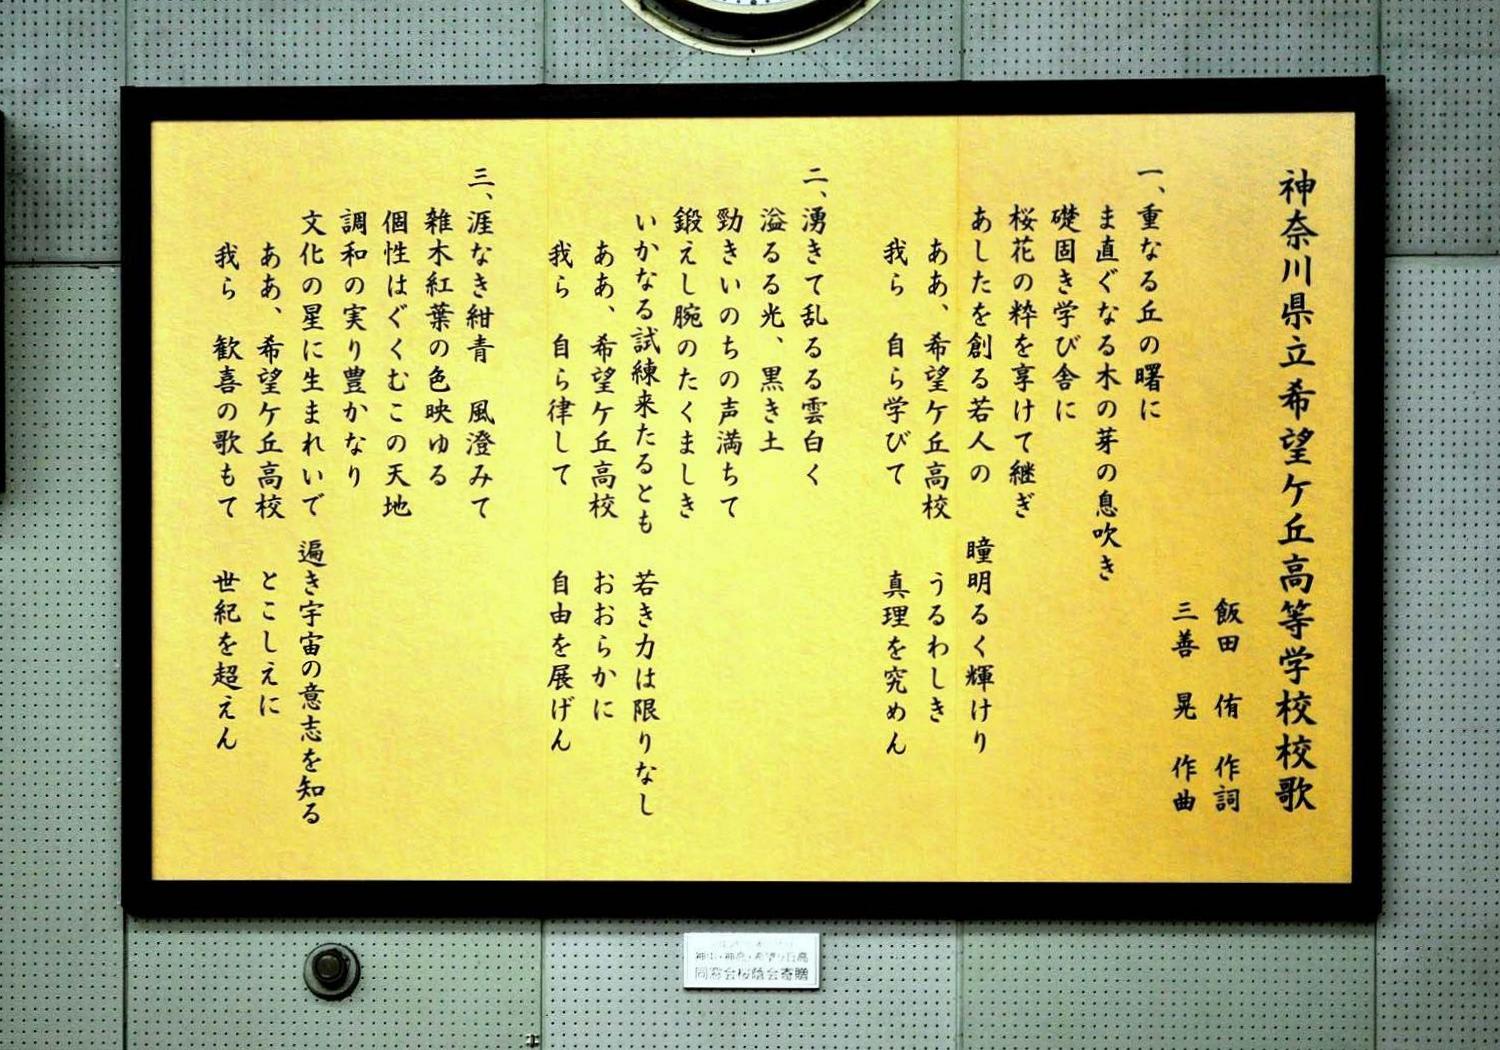 神奈川県立希望ケ丘高等学校校歌
飯田 侑 作詞
三善 晃 作曲
一、重なる丘の曙に
ま直ぐなる木の芽の息吹き
礎固き学び舎に
桜花の粋を享けて継ぎ
あしたを創る若人の 瞳明るく輝けり
ああ、希望ケ丘高校 うるわしき
我ら 自ら学びて 真理を究めん
二、湧きて乱るる雲白く
溢るる光、黒き土
勁きいのちの声満ちて
鍛えし腕のたくましき
いかなる試練来たるとも 若き力は限りなし
ああ、希望ケ丘高校 おおらかに
我ら 自ら律して 自由を展げん
三、涯なき紺青 風澄みて
雑木紅葉の色映ゆる
個性はぐくむこの天地
調和の実り豊かなり
文化の星に生まれいで 遍き宇宙の意志を知る
ああ、希望ケ丘高校 とこしえに
我ら 歓喜の歌もて 世紀を超えん
神中・神高・希望ケ丘高
同窓会桜蔭会寄贈